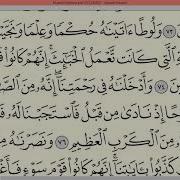 ٧٣ وَلُوطًا ءَاتَيْنَٰهُ حُكْمًا وَعِلْمًا وَنَجَّيْنَٰ
ٱلَّتِى كَانَت تَّعْمَلُ ٱلْخَبَٰٓئِثَ إِنَّهُمْ كَانُوا۟
٧٤ وَأَدْخَلْنَٰهُ فِى رَحْمَتِنَآ إِنَّهُۥ مِنَ ٱلصَّ
إِذْ نَادَىٰ مِن قَبْلُ فَٱسْتَجَبْنَا لَهُ
مِنَ ٱلْكَرْبِ ٱلْعَظِيمِ ٧٦ وَنَصَرْنَٰهُ
كَذَّبُوا۟ بِـَٔايَٰتِنَآ إِنَّهُمْ كَانُوا۟ قَوْمَ سَوْءٍ فَأَغْ